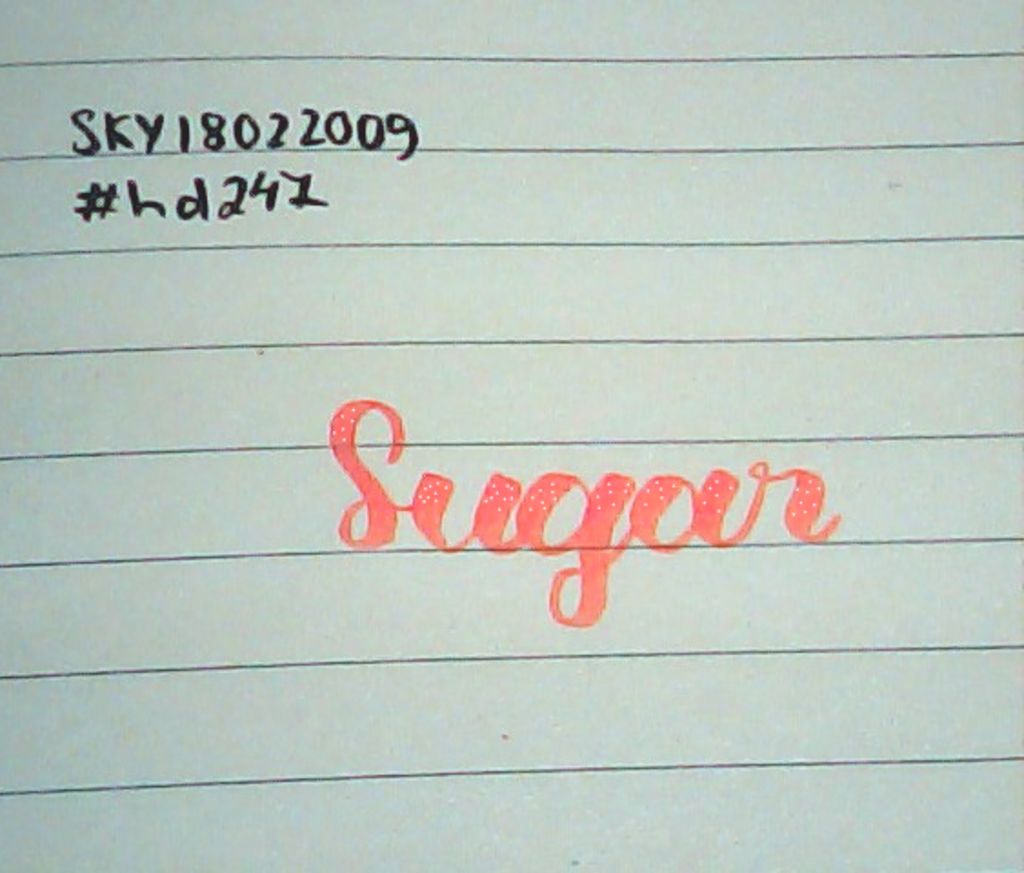 SKY18022009
#hd247
Sugar